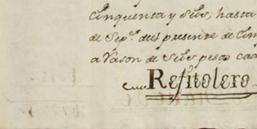 Cinquenta y Seis, hasta
de Sep.e del presente de Cin
a rason de Seis pesos cad
Refitolero